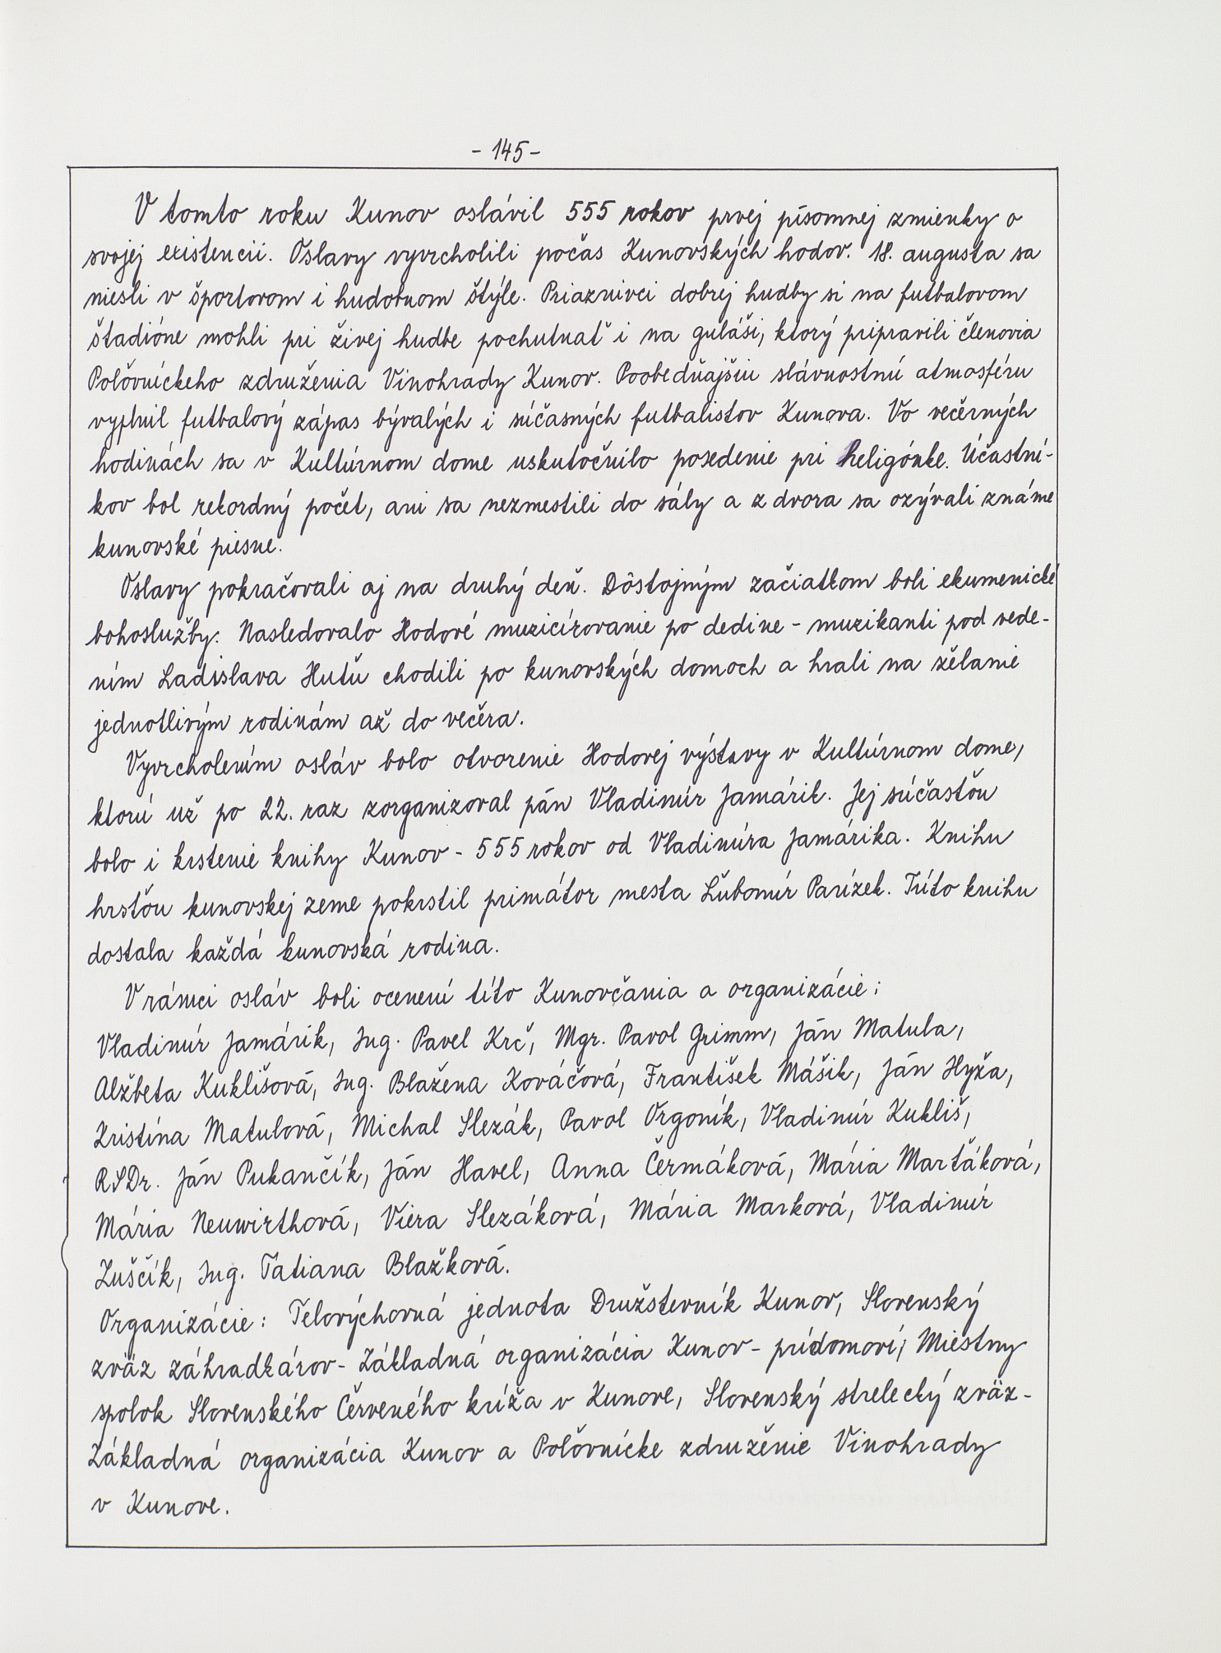 - 145 -
V tomto roku Kunov oslávil 555 rokov prvej písomnej zmienky o
svojej existencii. Oslavy vyvrcholili počas Kunovských hodov. 18. augusta sa
niesli v športovom i hudobnom štýle. Priaznivci dobrej hudby si na futbalovom
štadióne mohli pri živej hudbe pochutnať i na guláši, ktorý pripravili členovia
Poľovníckeho združenia Vinohrady Kunov. Poobedňajšiu slávnostnú atmosféru
vyplnil futbalový zápas bývalých i súčasných futbalistov Kunova. Vo večerných
hodinách sa v Kultúrnom dome uskutočnilo posedenie pri heligónke. Účastní-
kov bol rekordný počet, ani sa nezmestili do sály a z dvora sa ozývali známe
kunovské piesne.
Oslavy pokračovali aj na druhý deň. Dôstojným začiatkom boli ekumenické
bohoslužby. Nasledovalo Hodové muzicírovanie po dedine - muzikanti pod vede-
ním Ladislava Hutťu chodili po kunovských domoch a hrali na želanie
jednotlivým rodinám až do večera.
Vyvrcholením osláv bolo otvorenie Hodovej výstavy v Kultúrnom dome,
ktorú už po 22. raz zorganizoval pán Vladimír Jamárik. Jej súčasťou
bolo i krstenie knihy Kunov - 555 rokov od Vladimíra Jamárika. Knihu
hrsťou kunovskej zeme pokrstil primátor mesta Ľubomír Parízek. Túto knihu
dostala každá kunovská rodina.
V rámci osláv boli ocenení títo Kunovčania a organizácie:
Vladimír Jamárik, Ing. Pavel Krč, Mgr. Pavol Grimm, Ján Matula,
Alžbeta Kuklišová, Ing. Blažena Kováčová, František Mášik, Ján Hyža,
Kristína Matulová, Michal Slezák, Pavol Orgoník, Vladimír Kukliš,
RSDr. Ján Pukančík, Ján Havel, Anna Čermáková, Mária Marťáková,
Mária Neuwirthová, Viera Slezáková, Mária Marková, Vladimír
Zuščík, Ing. Tatiana Blažková.
Organizácie: Telovýchovná jednota Družstevník Kunov, Slovenský
zväz záhradkárov - Základná organizácia Kunov - prídomoví, Miestny
spolok Slovenského Červeného kríža v Kunove, Slovenský strelecký zväz -
Základná organizácia Kunov a Poľovnícke združenie Vinohrady
v Kunove.